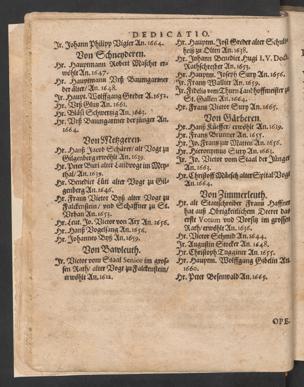 DEDICATIO.
Jr. Johann Philipp Vigier An. 1664.
Von Schneyderen.
Hr. Hauptmann Robert Mascher er-
wöhlt An. 1647.
Hr. Hauptmann Urß Baumgartner
der älter/ An. 1648.
Jr. Haupt. Wolffgang Greder A. 1652.
Hr. Urß Glutz An. 1661.
Hr. Blasi Schwertzig An. 1663.
Hr. Urß Baumgartner der jünger An.
1664.
Von Metzgeren.
Hr. Hanß Jacob Schärer/ alt Vogt zu
Gilgenberg erwöhlt An. 1639.
Hr. Peter Buri alter Landvogt im Mey-
thal/ An. 1639.
Hr. Benedict Lüti alter Vogt zu Gil-
genberg An. 1646.
Hr. Frantz Victor Byß alter Vogt zu
Falckenstein/ und Schaffner zu St.
Urban An. 1653.
Hr. Leut. Jo. Victor von Arx An. 1656.
Hr. Hanß Vogelsang An. 1656.
Hr. Johannes Byß An. 1659.
Von Bawleuth.
Jr. Victor vom Staal Senior im gros-
sen Rath/ alter Vogt zu Falckenstein/
erwöhlt An. 1612.
Hr. Hauptm. Jost Greder alter Schult-
heiß zu Olten An. 1638.
Hr. Johann Benedict Hugi I.V. Doct.
Rathschreiber An. 1653.
Hr. Hauptm. Joseph Sury An. 1656.
Jr. Frantz Wallier An. 1659.
Jr. Fidelis von Thurn Landhoffmeister zu
St. Gallen An. 1664.
Hr. Frantz Victor Sury An. 1665.
Von Gärberen.
Hr. Hanß Kieffer/ erwöhlt An. 1639.
Hr. Frantz Brunner An. 1655.
Hr. Jo. Frantz zur Matten An. 1656.
Hr. Hieronymus Sury An. 1663.
Jr. Jo. Victor vom Staal der Jünger
An. 1663.
Hr. Christoff Mäsch alter Spital Vogt
An. 1664.
Von Zimmerleuth.
Hr. alt Standschreiber Frantz Haffner
hat auß Obrigkeitlichen Decret das
erste Votum und Vorsitz im grossen
Rath/ erwöhlt An. 1636.
Hr. Victor Schmid An. 1644.
Jr. Augustin Stocker An. 1648.
Hr. Christoph Tugginer An. 1655.
Hr. Hauptm. Wolffgang Gibelin An.
1660.
Hr. Peter Besenwald An. 1665.
OPE-